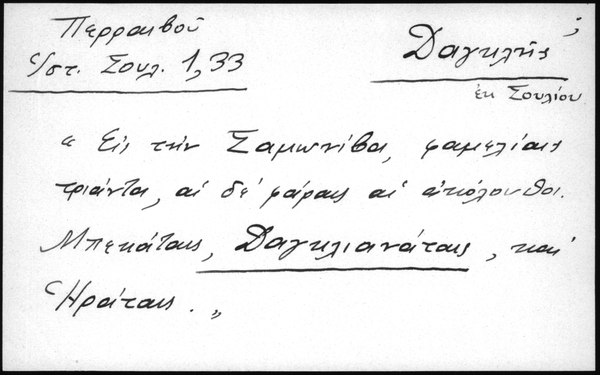 Περραιβοῦ
Ἱστ. Σουλ. 1,33
Δαγκλῆς ;
ἐκ Σουλίου
" Εἰς τὴν Σαμωνίβα, φαμελίαις
τριάντα, αἱ δὲ φάραις αἱ ἀκόλουθοι.
Μπεκάταις, Δαγκλιανάταις, καὶ
Ἡράταις. „